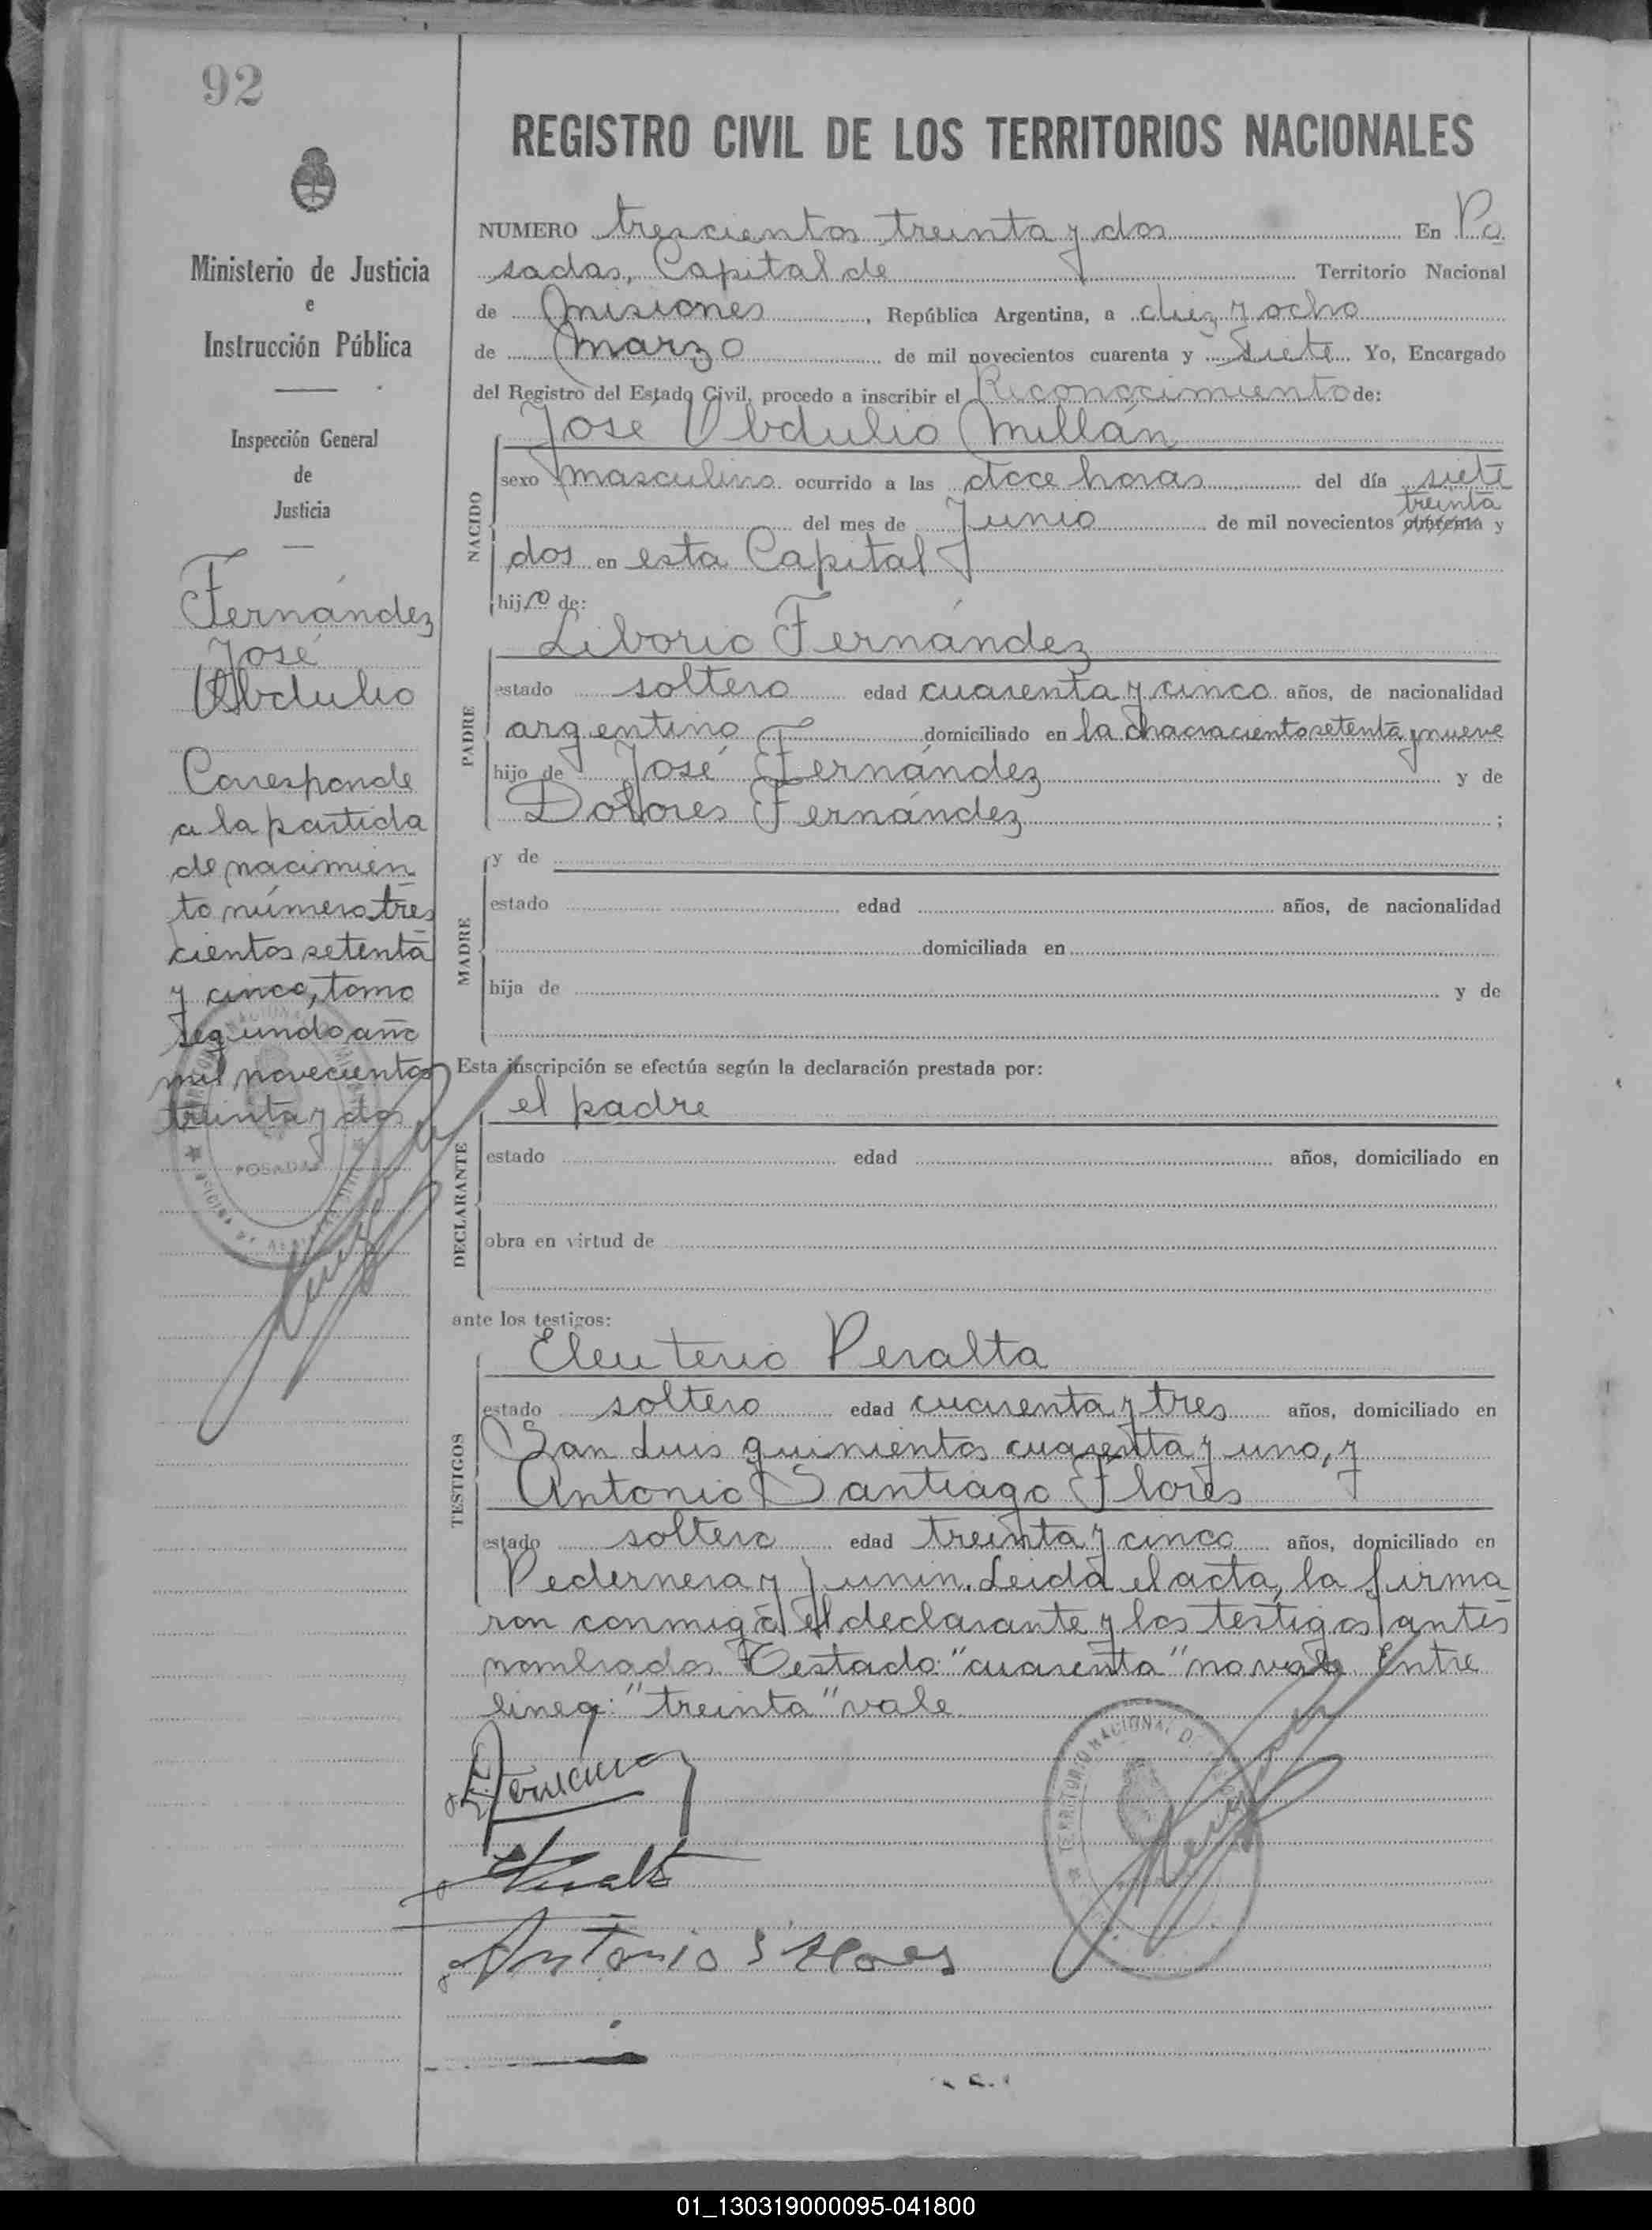 92
Ministerio de Justicia
e
Instrucción Pública
Inspección General
de
Justicia
Fernández
José
Ubdulio
Corresponde
a la partida
de nacimien
to número tres
cientos setenta
y cinco, tomo
segundo año
mil novecientos
treinta y dos
POSADAS
REGISTRO CIVIL DE LOS TERRITORIOS NACIONALES
NUMERO trescientos treinta y dos En Po
sadas, Capital de Territorio Nacional
de Misiones, República Argentina, a diez y ocho
de Marzo de mil novecientos cuarenta y siete Yo, Encargado
del Registro del Estado Civil, procedo a inscribir el Reconocimiento de:
NACIDO
José Ubdulio Millán
sexo masculino ocurrido a las doce horas del día siete
treinta
del mes de Junio de mil novecientos cuarenta y
dos en esta Capital
hijo de:
PADRE
Liborio Fernández
estado soltero edad cuarenta y cinco años, de nacionalidad
argentino domiciliado en la chacra ciento setenta y nueve
hijo de José Fernández y de
Dolores Fernández ;
MADRE
y de
estado edad años, de nacionalidad
domiciliada en
hija de y de
Esta inscripción se efectúa según la declaración prestada por:
DECLARANTE
el padre
estado edad años, domiciliado en
obra en virtud de
ante los testigos:
TESTIGOS
Eleuterio Peralta
estado soltero edad cuarenta y tres años, domiciliado en
San Luis quinientos cuarenta y uno, y
Antonio Santiago Flores
estado soltero edad treinta y cinco años, domiciliado en
Pedernera y Junin. Leida el acta, la firma
ron conmigo el declarante y los testigos antes
nombrados. Testado: "cuarenta" no vale. Entre
linea: "treinta" vale.
TERRITORIO NACIONAL DE
Antonio S Flores
01_130319000095-041800